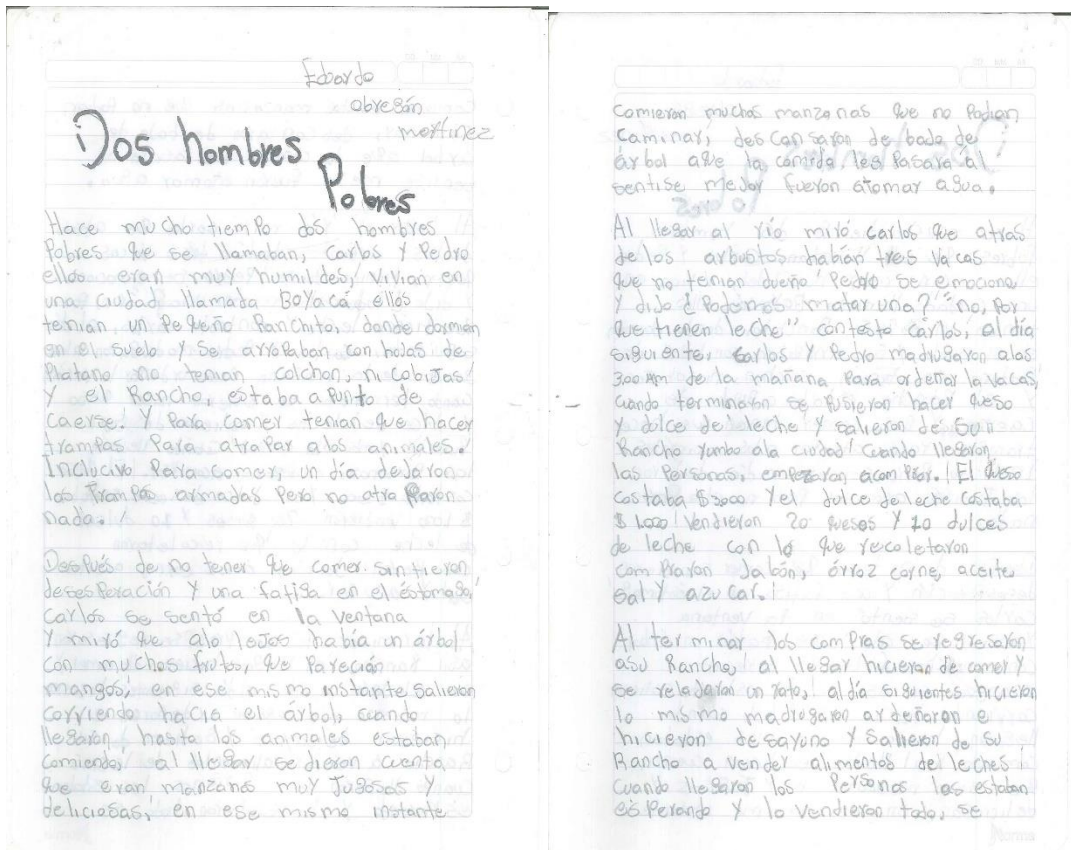 Eduardo
obregán
martinez
¡Dos hombres
Pobres
Hace mucho tiempo dos hombres
Pobres que se llamaban, Carlos y Pedro
ellos eran muy humildes, Vivian en
una ciudad llamada Boyacá ellos
tenian un Pequeño Ranchito, donde dormian
en el suelo y se arropaban con hojas de
Platano no tenian colchon, ni cobijas!
Y el Rancho, estaba a Punto de
Caerse! Y Para comer tenian que hacer
trampas Para atrapar alos animales.
Inclucivo Para comer, un día dejaron
las Trampas armadas Pero no atraparon
nada.!
Después de no tener que comer sintieron
desesperación y una fatiga en el estomago,
Carlos se sentó en la ventana
y miró que alo lejos había un árbol
con muchos frutos, que Pareción
mangos, en ese mismo instante salieron
corriendo hacia el árbol, cuando
llegaron, hasta los animales estaban
comiendo, al llegar se dieron cuenta
que eran manzanas muy Jugosas y
deliciosas, en ese mismo instante
Comieron muchas manzanas que no Podian
Caminar, descansaron de bajo de
árbol aque la comida les Pasara al
sentise mejor fueron atomar agua.
Al llegar al río miró carlos que atras
de los arbustos habián tres Vacas
que no tenian dueño! Pedro se emociono
y dijo ¿ Podemos matar una? "no, Por
que tienen leche" contesto carlos, al día
siguiente, carlos y Pedro madrugaron alas
300 Am de la mañana Para ordeñar la vacas,
cuando terminaron se Pusieron hacer queso
y dulce de leche y salieron de sun
Rancho rumbo ala ciudad! Cuando llegaron
las Personas, empezaron acomprar.! El queso
costaba $3000 Y el dulce de leche costaba
$ 1.000! Vendieron 20 quesos Y 20 dulces
de leche con lo que recoletaron
compraron Jabón, árroz carne, aceite
sal Y azucar.!
Al terminar los compras se regresaron
asu Rancho, al llegar hicieron de comer y
se relajaron un rato, al día siguientes hicieron
lo mismo madrugaron ardeñaron e
hicieron desayuno Y salieron de su
Rancho a vender alimentos del leches!
Cuando llegaron los Personas los estaban
esperando y lo vendieron todo, se
Norma